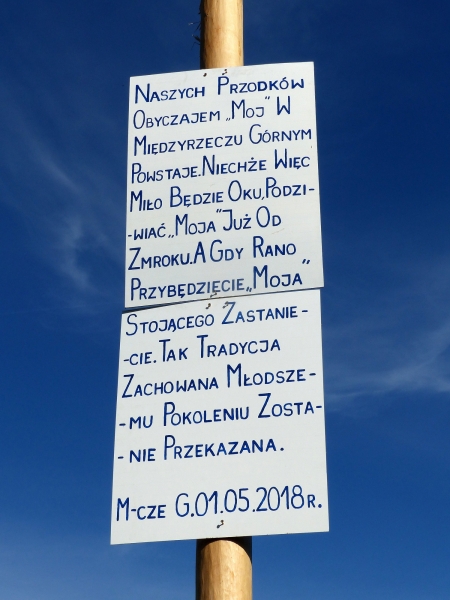 Naszych Przodków
Obyczajem „Moj" W
Międzyrzeczu Górnym
Powstaje. Niechże Więc
Miło Będzie Oku, Podzi-
-wiać „Moja" Już Od
Zmroku. A Gdy Rano
Przybędziecie „Moja"
Stojącego Zastanie-
-cie. Tak Tradycja
Zachowana Młodsze-
-mu Pokoleniu Zosta-
-nie Przekazana.
M-cze G. 01.05.2018r.